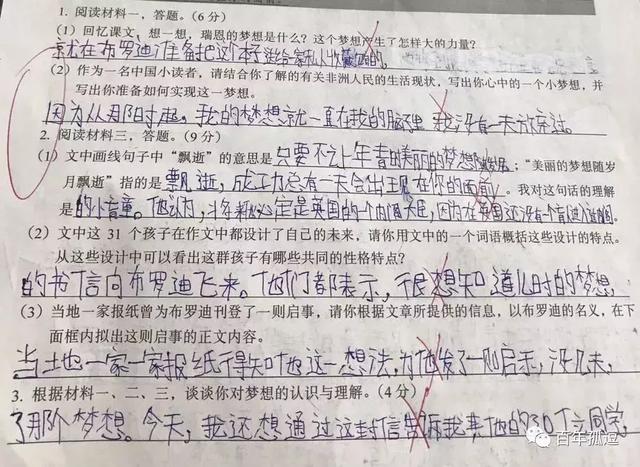 1. 阅读材料一，答题。（6分）
（1）回忆课文，想一想，瑞恩的梦想是什么？这个梦想产生了怎样大的力量？
就在布罗迪准备把这个本子送给家私人收藏
（2）作为一名中国小读者，请结合你了解的有关非洲人民的生活现状，写出你心中的一个小梦想，并
写出你准备如何实现这一梦想。
因为从那时起，我的梦想就一直在我的脑里 我没有一天放弃过。
2. 阅读材料三，答题。（9分）
（1）文中画线句子中“飘逝”的意思是只要不让年青时美丽的梦想；“美丽的梦想随岁
月飘逝”指的是飘逝，成功总有一天会出现在你的面前。我对这句话的理解
是的小盲童。他认为，将来必定是英国的一个内阁大臣，因为在英国还没有一个盲人进入内阁。
（2）文中这 31 个孩子在作文中都设计了自己的未来，请你用文中的一个词语概括这些设计的特点。
从这些设计中可以看出这群孩子有哪些共同的性格特点？
的书信向布罗迪飞来。他们都表示，很想知道儿时的梦想，
（3）当地一家报纸曾为布罗迪刊登了一则启事，请你根据文章所提供的信息，以布罗迪的名义，在下
面框内拟出这则启事的正文内容。
当地一家一家报纸得知他这一想法，为他发了一则启示，没几天，
3. 根据材料一、二、三，谈谈你对梦想的认识与理解。（4分）
了那个梦想。今天，我还想通过这封信告诉我其他的30位同学，
百年孤逗